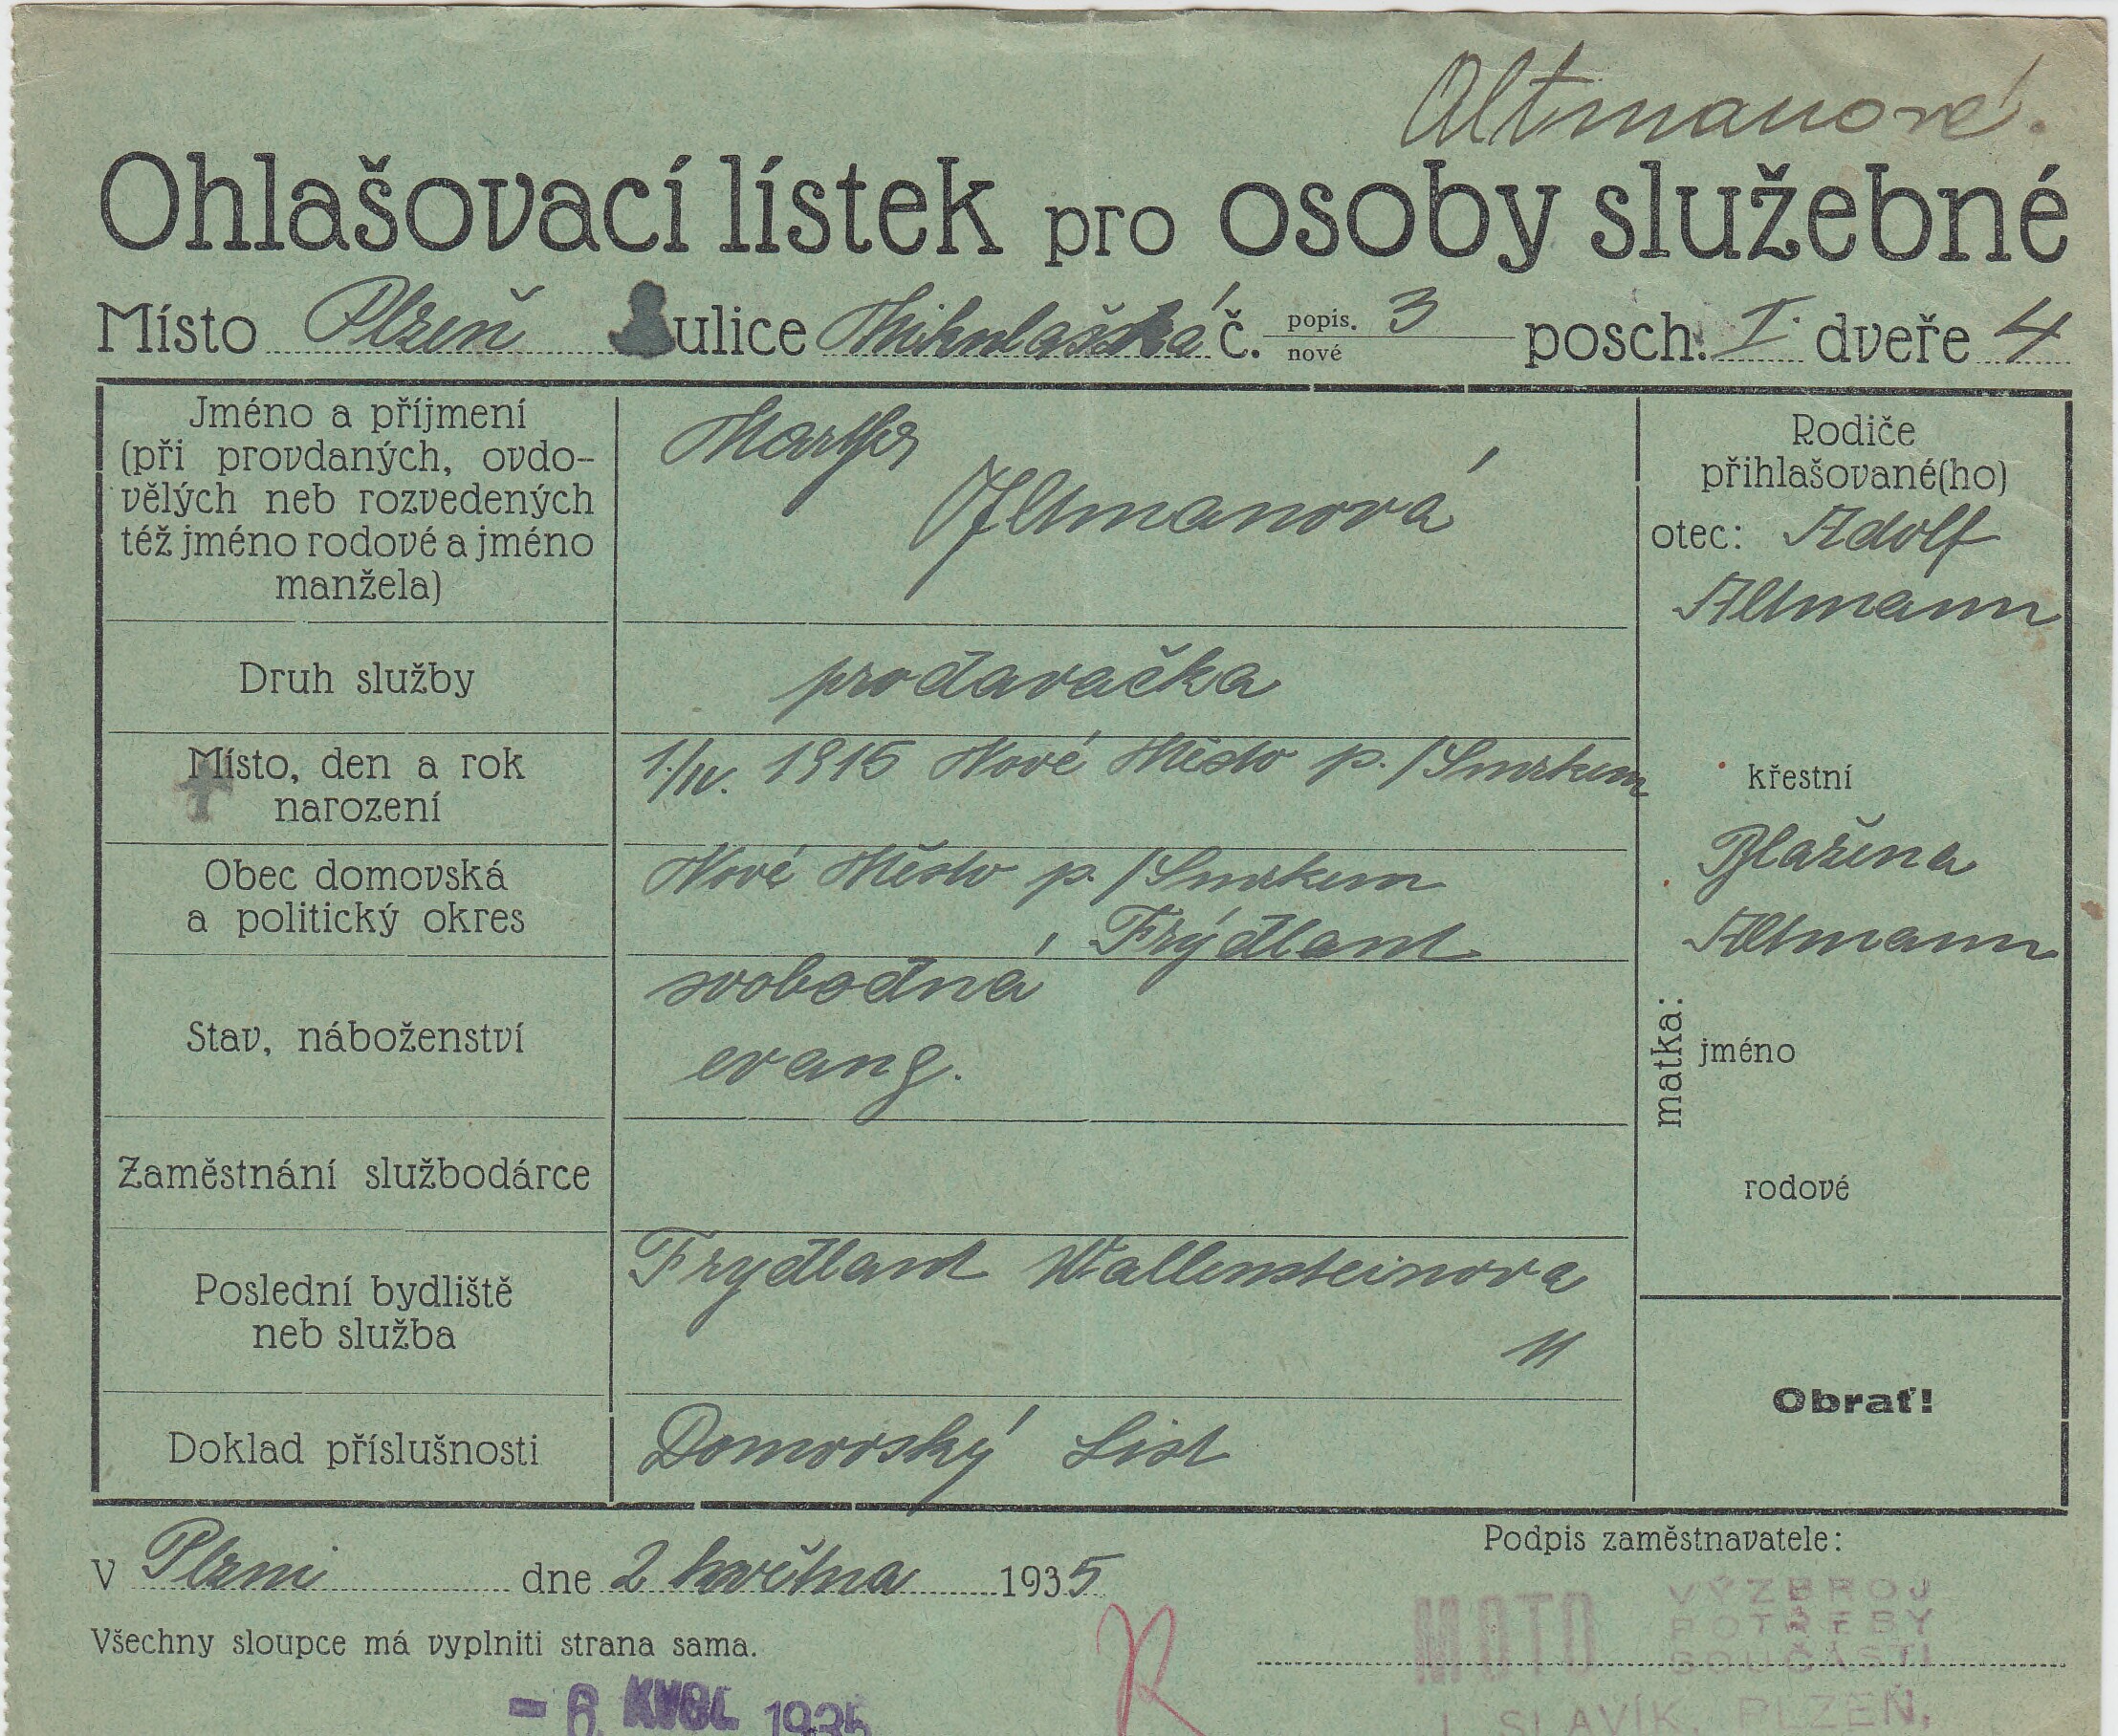 Altmanové.
Ohlašovací lístek pro osoby služebné
Místo Plzeň ulice Mikulašská č. popis. 3 nové posch. I. dveře 4
Jméno a příjmení
(při provdaných, ovdo-
vělých neb rozvedených
též jméno rodové a jméno
manžela)
Martha
Altmanová
Rodiče
přihlašované(ho)
otec: Adolf
Altmann
Druh služby
prodavačka
Místo, den a rok
narození
1./IV. 1915 Nové Město p./Smrkem
křestní
Blažena
Altmann
matka: jméno
rodové
Obec domovská
a politický okres
Nové Město p./Smrkem
, Frýdlant
Stav, náboženství
svobodná
evang.
Zaměstnání službodárce
Poslední bydliště
neb služba
Frydlant Wallensteinova
11
Obrať!
Doklad příslušnosti
Domovský List
V Plzni dne 2 května 1935
Podpis zaměstnavatele:
Všechny sloupce má vyplniti strana sama.
MOTO VÝZBROJ
POTŘEBY
SOUČÁSTI
SLAVÍK, PLZEŇ,
- 6. KVĚT. 1935
R